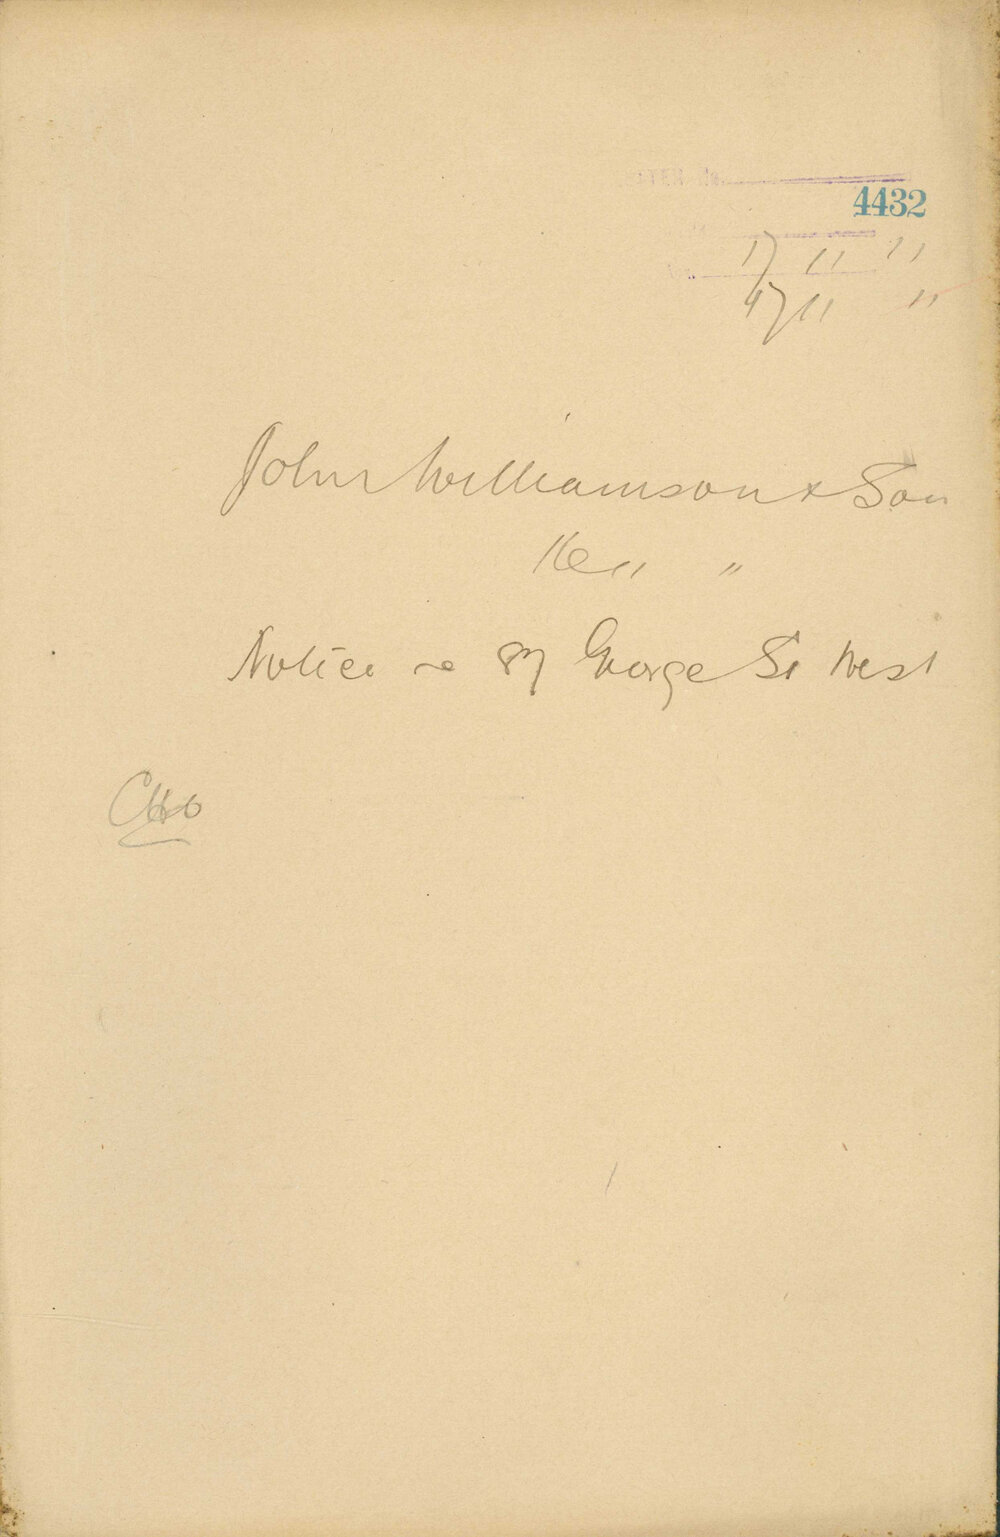 4432
17 11 11
4711 11
John Williamson & Son
16 11 "
Notice re 87 George St West
CHO